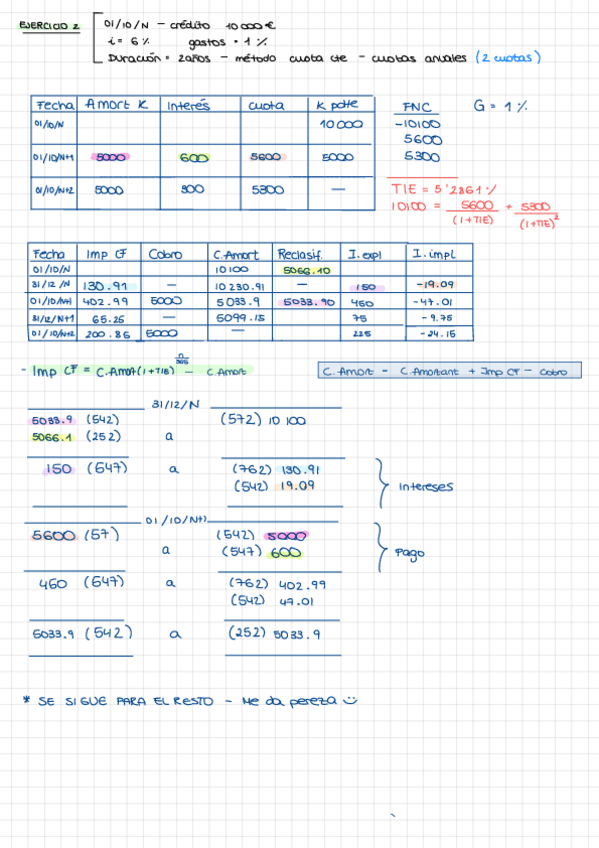 EJERCICIO 2
01/10/N - crédito 10 000 €
i = 6 % gastos = 1 %
Duración = 2 años - método cuota cte - cuotas anuales (2 cuotas)
Fecha Amort K Interés cuota K pdte FNC G = 1 %
01/10/N 10 000 -10100
5600
01/10/N+1 5000 600 5600 5000 5300
01/10/N+2 5000 300 5300 —
TIE = 5'2861 %
10100 = 5600/(1+TIE) + 5300/(1+TIE)²
Fecha Imp CF Cobro C.Amort Reclasif. I.expl I.impl
01/10/N 10100 5066.10
31/12/N 130.91 — 10 230.91 — 150 -19.09
01/10/N+1 402.99 5000 5033.9 5033.90 450 -47.01
31/12/N+1 65.25 — 5099.15 75 -9.75
01/10/N+2 200.85 5000 — 225 -24.15
- Imp CF = C.Amort(1+TIE)^n/365 - C.Amort
C.Amort = C.Amortant + Imp CF - Cobro
31/12/N
5033.9 (542) (572) 10 100
5066.1 (252) a
150 (547) a (762) 130.91
(542) 19.09
Intereses
01/10/N+1
5600 (57) (542) 5000
a (547) 600
Pago
450 (547) a (762) 402.99
(542) 47.01
5033.9 (542) a (252) 5033.9
* SE SIGUE PARA EL RESTO - Me da pereza ☺